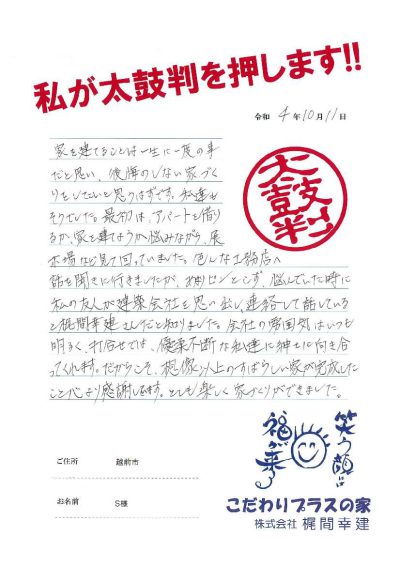 私が太鼓判を押します!!
令和 4年10月11日
家を建てることは一生に一度の事
だと思い、後悔のしない家づく
りをしたいと思うはずです。私達も
そうでした。最初は、アパートを借り
るか、家を建てようか悩みながら、展
示場など見て回っていました。色んな工務店へ
話を聞きに行きましたが、お金ピンとこず、悩んでいた時に
私の友人が建築会社を思い出し連絡して話している
と梶間幸建さんだと知りました。会社の雰囲気はいつも
明るく、打合せでは、優柔不断な私達に紳士に向き合
ってくれます。だからこそ、想像以上のすばらしい家が完成した
こと心より感謝します。とても楽しく家づくりができました。
太鼓判!!
ご住所 越前市
お名前 S様
笑う顔には
福が来る
こだわりプラスの家
株式会社 梶間幸建